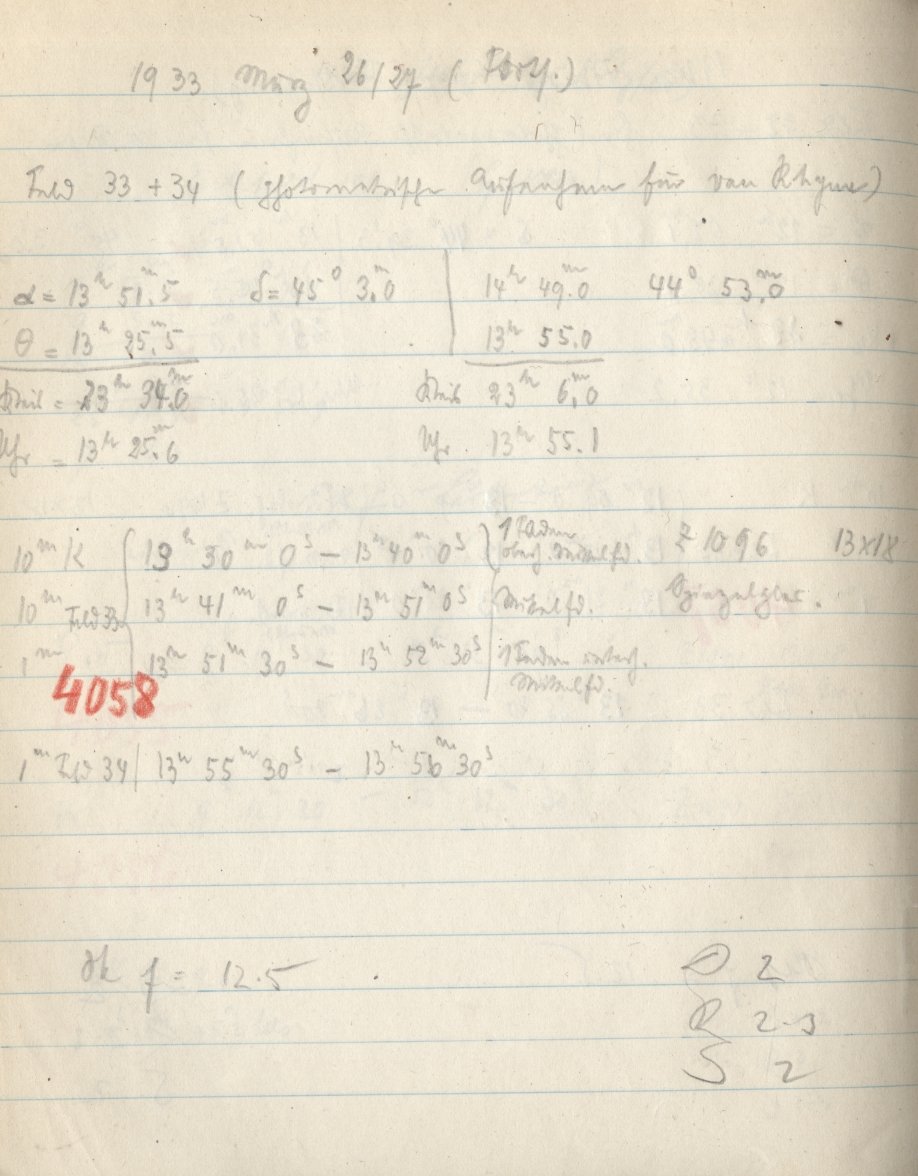 1933 März 26/27 (Forts.)
Feld 33 + 34 (photometrische Aufnahmen für van Rhijn)
α = 13ʰ 51ᵐ.5 δ = 45° 3ᵐ.0 14ʰ 49ᵐ.0 44° 53ᵐ.0
θ = 13ʰ 25ᵐ.5 13ʰ 55.0
Kreis = 23ʰ 34ᵐ.0 Kreis 23ʰ 6ᵐ.0
Uhr = 13ʰ 25ᵐ.6 Uhr 13ʰ 55.1
10ᵐ K 13ʰ 30ᵐ 0ˢ – 13ʰ 40ᵐ 0ˢ 1 Faden oberh. Mittelfd. Z 1096 13x18
10ᵐ Feld 33 13ʰ 41ᵐ 0ˢ – 13ʰ 51ᵐ 0ˢ Mittelfd. Spiegelglas.
1ᵐ 13ʰ 51ᵐ 30ˢ – 13ʰ 52ᵐ 30ˢ 1 Faden unterh. Mittelfd.
4058
1ᵐ Feld 34 | 13ʰ 55ᵐ 30ˢ – 13ʰ 56ᵐ 30ˢ
f = 12.5
D 2
R 2-3
S 2